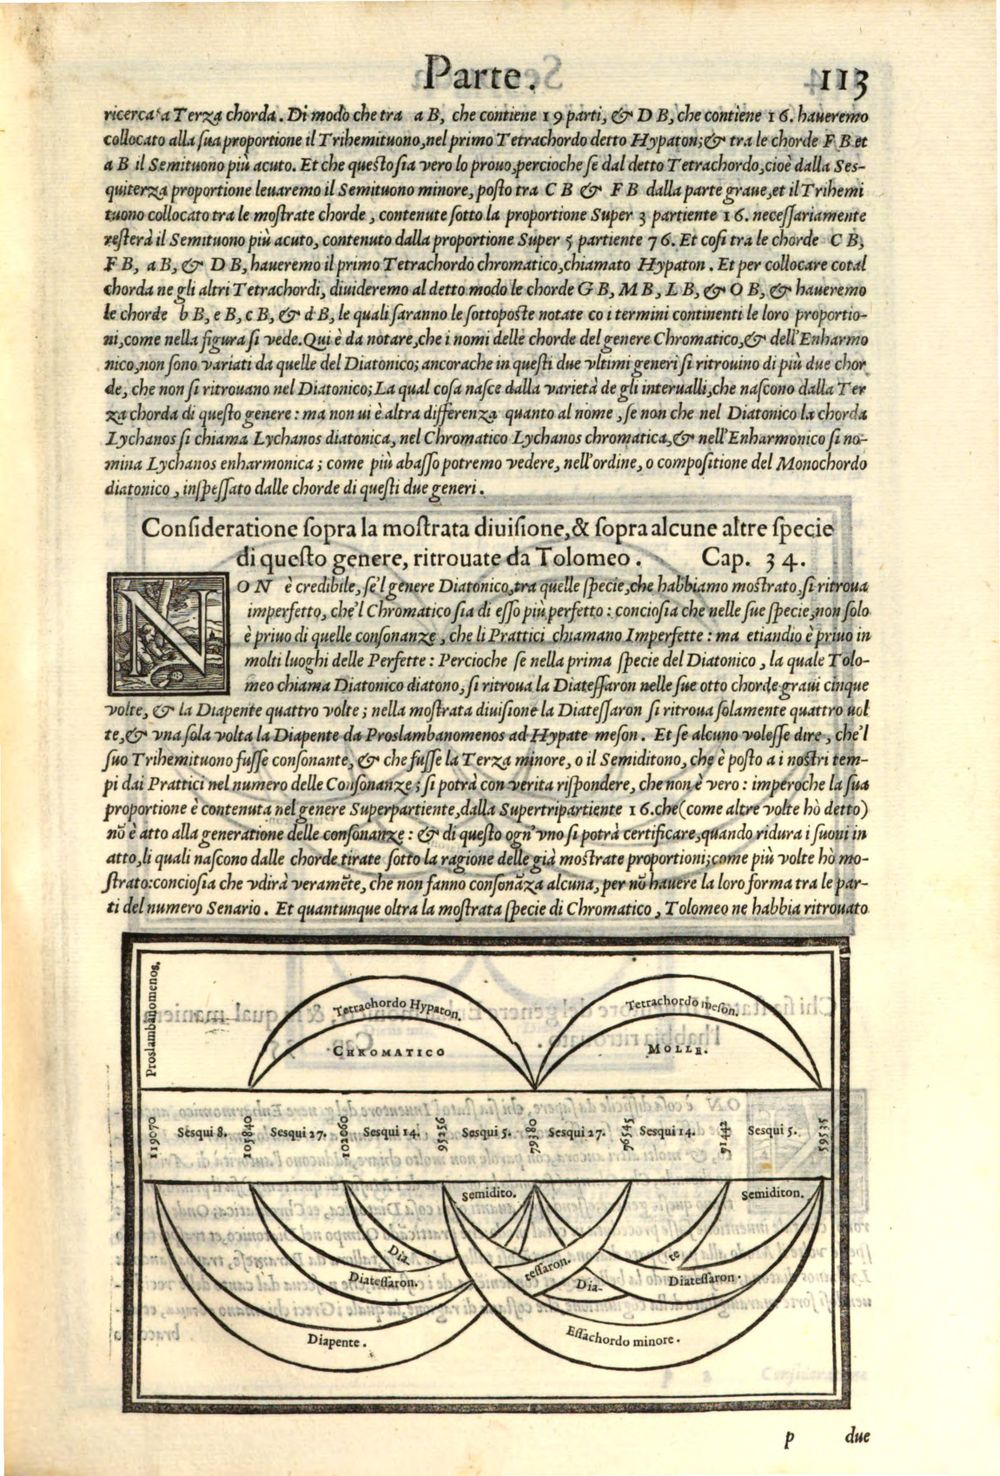 Parte. 113
ricerca a Terza chorda. Di modo che tra a B, che contiene 19 parti, & D B, che contiene 16. haueremo
collocato alla sua proportione il Trihemituono, nel primo Tetrachordo detto Hypaton; & tra le chorde F B et
a B il Semituono più acuto. Et che questo sia vero lo prouo, percioche se dal detto Tetrachordo, cioè dalla Ses-
quiterza proportione leuaremo il Semituono minore, posto tra C B & F B dalla parte graue, et il Trihemi
tuono collocato tra le mostrate chorde, contenute sotto la proportione Super 3 partiente 16. necessariamente
resterà il Semituono più acuto, contenuto dalla proportione Super 5 partiente 76. Et cosi tra le chorde C B,
F B, a B, & D B, haueremo il primo Tetrachordo chromatico, chiamato Hypaton. Et per collocare cotal
chorda ne gli altri Tetrachordi, diuideremo al detto modo le chorde G B, M B, L B, & O B, & haueremo
le chorde b B, e B, c B, & d B, le quali saranno le sottoposte notate co i termini continenti le loro proportio-
ni, come nella figura si vede. Qui è da notare, che i nomi delle chorde del genere Chromatico, & dell'Enharmo
nico, non sono variati da quelle del Diatonico; ancorache in questi due vltimi generi si ritrouino di più due chor
de, che non si ritrouano nel Diatonico; La qual cosa nasce dalla varietà de gli interualli, che nascono dalla Ter
za chorda di questo genere: ma non ui è altra differenza quanto al nome, se non che nel Diatonico la chorda
Lychanos si chiama Lychanos diatonica, nel Chromatico Lychanos chromatica, & nell'Enharmonico si no-
mina Lychanos enharmonica; come più abasso potremo vedere, nell'ordine, o compositione del Monochordo
diatonico, inspessato dalle chorde di questi due generi.
Consideratione sopra la mostrata diuisione, & sopra alcune altre specie
di questo genere, ritrouate da Tolomeo. Cap. 34.
NON è credibile, se'l genere Diatonico, tra quelle specie, che habbiamo mostrato, si ritroua
imperfetto, che'l Chromatico sia di esso più perfetto: conciosia che nelle sue specie, non solo
è priuo di quelle consonanze, che li Prattici chiamano Imperfette: ma etiandio è priuo in
molti luoghi delle Perfette: Percioche se nella prima specie del Diatonico, la quale Tolo-
meo chiama Diatonico diatono, si ritroua la Diatessaron nelle sue otto chorde graui cinque
volte, & la Diapente quattro volte; nella mostrata diuisione la Diatessaron si ritroua solamente quattro uol
te, & vna sola volta la Diapente da Proslambanomenos ad Hypate meson. Et se alcuno volesse dire, che'l
suo Trihemituono fusse consonante, & che fusse la Terza minore, o il Semiditono, che è posto a i nostri tem-
pi dai Prattici nel numero delle Consonanze; si potrà con verita rispondere, che non è vero: imperoche la sua
proportione è contenuta nel genere Superpartiente, dalla Supertripartiente 16. che (come altre volte hò detto)
nõ è atto alla generatione delle consonanze: & di questo ogn'vno si potrà certificare, quando ridura i suoni in
atto, li quali nascono dalle chorde tirate sotto la ragione delle già mostrate proportioni; come più volte hò mo-
strato: conciosia che vdirà veramẽte, che non fanno consonãza alcuna, per nõ hauere la loro forma tra le par-
ti del numero Senario. Et quantunque oltra la mostrata specie di Chromatico, Tolomeo ne habbia ritrouato
Proslambanomenos.
Tetrachordo Hypaton. Tetrachordo meson.
CHROMATICO MOLLE.
119070 Sesqui 8. 105840 Sesqui 27. 102060 Sesqui 14. 95256 Sesqui 5. 79380 Sesqui 27. 76545 Sesqui 14. 71442 Sesqui 5. 59535
Semidito. Semiditon.
Dia- tessaron. te
Diatessaron. Dia- Diatessaron.
Diapente. Essachordo minore.
p due